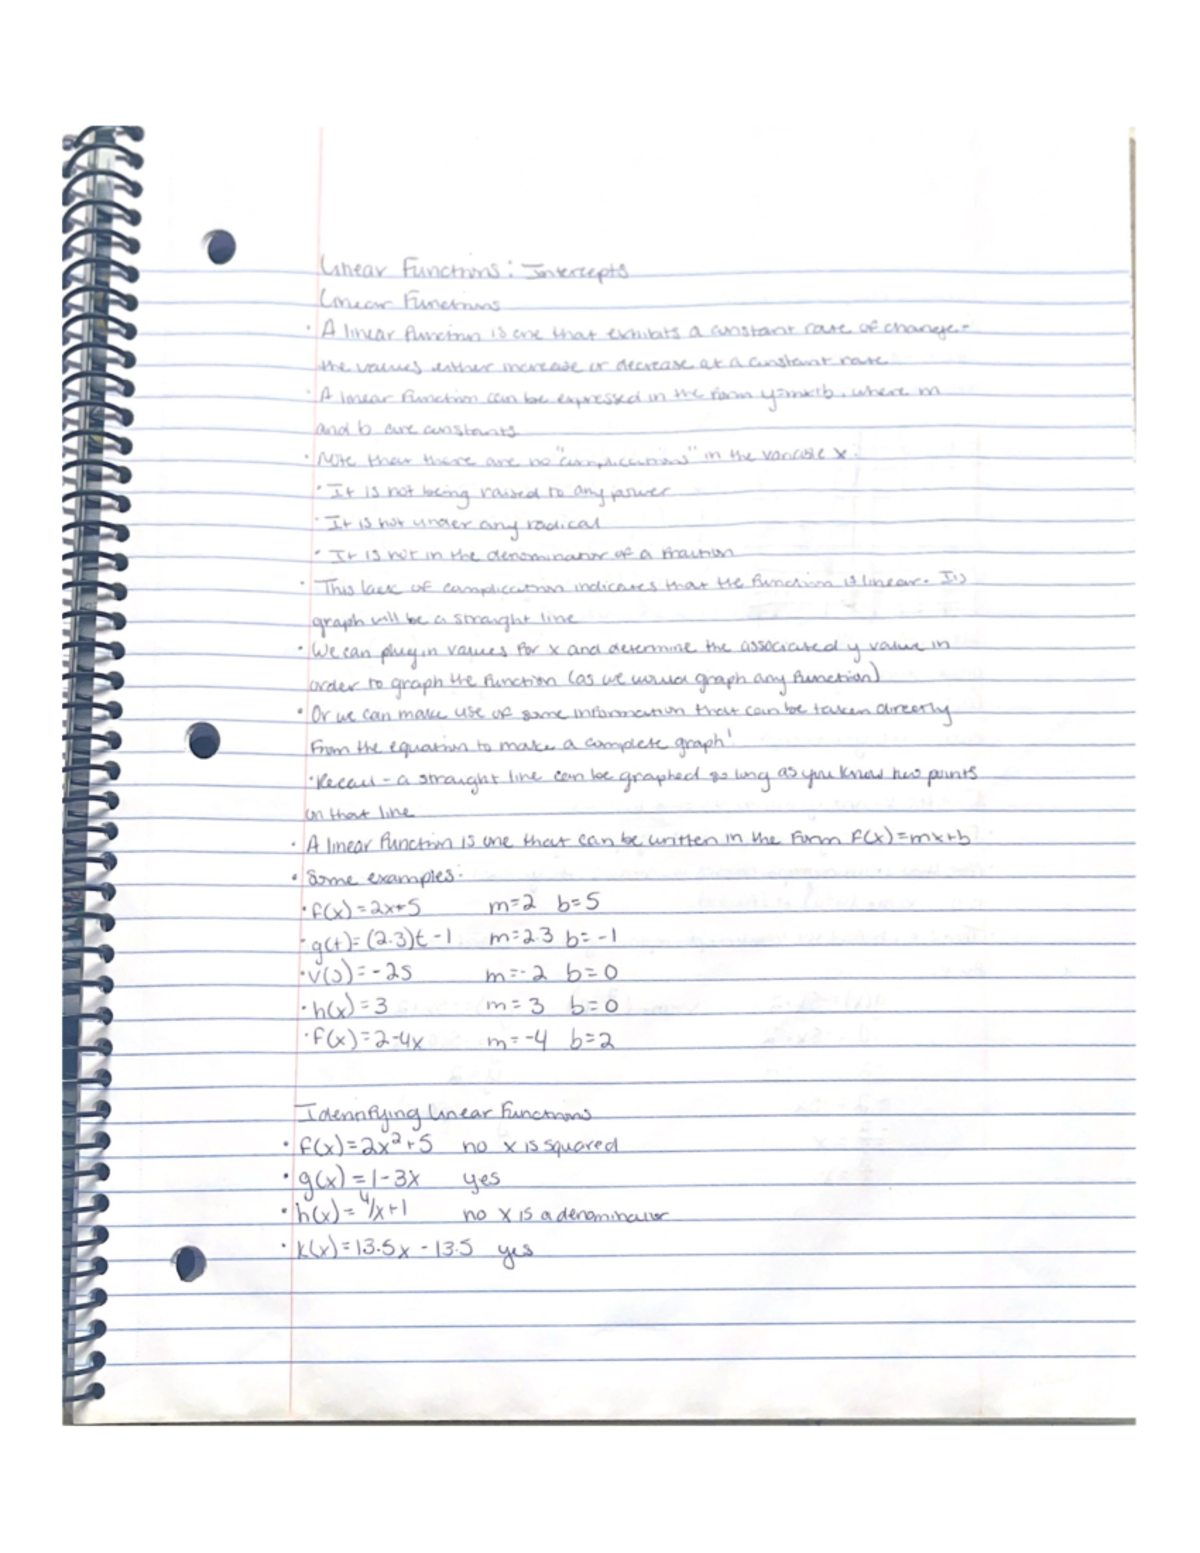 Linear Functions: Intercepts
Linear Functions
· A linear function is one that exhibits a constant rate of change -
the values either increase or decrease at a constant rate
· A linear function can be expressed in the form y=mx+b, where m
and b are constants
· Note that there are no "complications" in the variable x.
· It is not being raised to any power
· It is not under any radical
· It is not in the denominator of a fraction
· This lack of complication indicates that the function is linear. Its
graph will be a straight line
· We can plug in values for x and determine the associated y value in
order to graph the function (as we would graph any function)
· Or we can make use of some information that can be taken directly
from the equation to make a complete graph!
· Recall - a straight line can be graphed so long as you know two points
on that line
· A linear function is one that can be written in the form f(x)=mx+b
· Some examples:
· f(x)=2x+5 m=2 b=5
· g(t)=(2.3)t-1 m=2.3 b=-1
· v(s)=-2s m=-2 b=0
· h(x)=3 m=3 b=0
· f(x)=2-4x m=-4 b=2
Identifying Linear Functions
· f(x)=2x²+5 no x is squared
· g(x)=1-3x yes
· h(x)=4/x+1 no x is a denominator
· k(x)=13.5x-13.5 yes